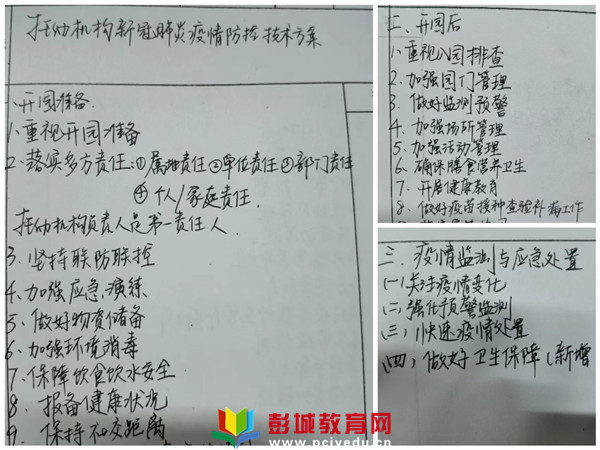 托幼机构新冠肺炎疫情防控技术方案
一、开园准备
1、重视开园准备
2、落实多方责任:①属地责任②单位责任③部门责任
④个人/家庭责任.
托幼机构负责人是第一责任人.
3、坚持联防联控
4、加强应急演练
5、做好物资储备
6、加强环境消毒
7、保障饮食饮水安全
8、报备健康状况
9、保持社交距离
二、开园后
1、重视入园排查
2、加强园门管理
3、做好监测预警
4、加强场所管理
5、加强活动管理
6、确保膳食营养卫生
7、开展健康教育
8、做好疫苗接种查验补种工作
三、疫情监测与应急处置
(一)关注疫情变化
(二)强化预警监测
(三)快速疫情处置
(四)做好卫生保障(新增
彭城教育网
www.pcjyedu.cn